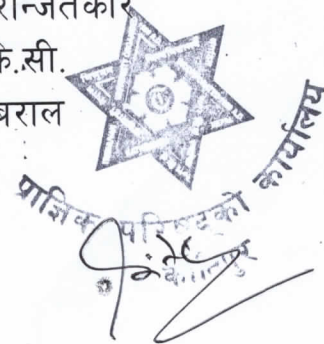 रन्जितकार
के.सी.
बराल
प्राज्ञिक परिषद्को कार्यालय